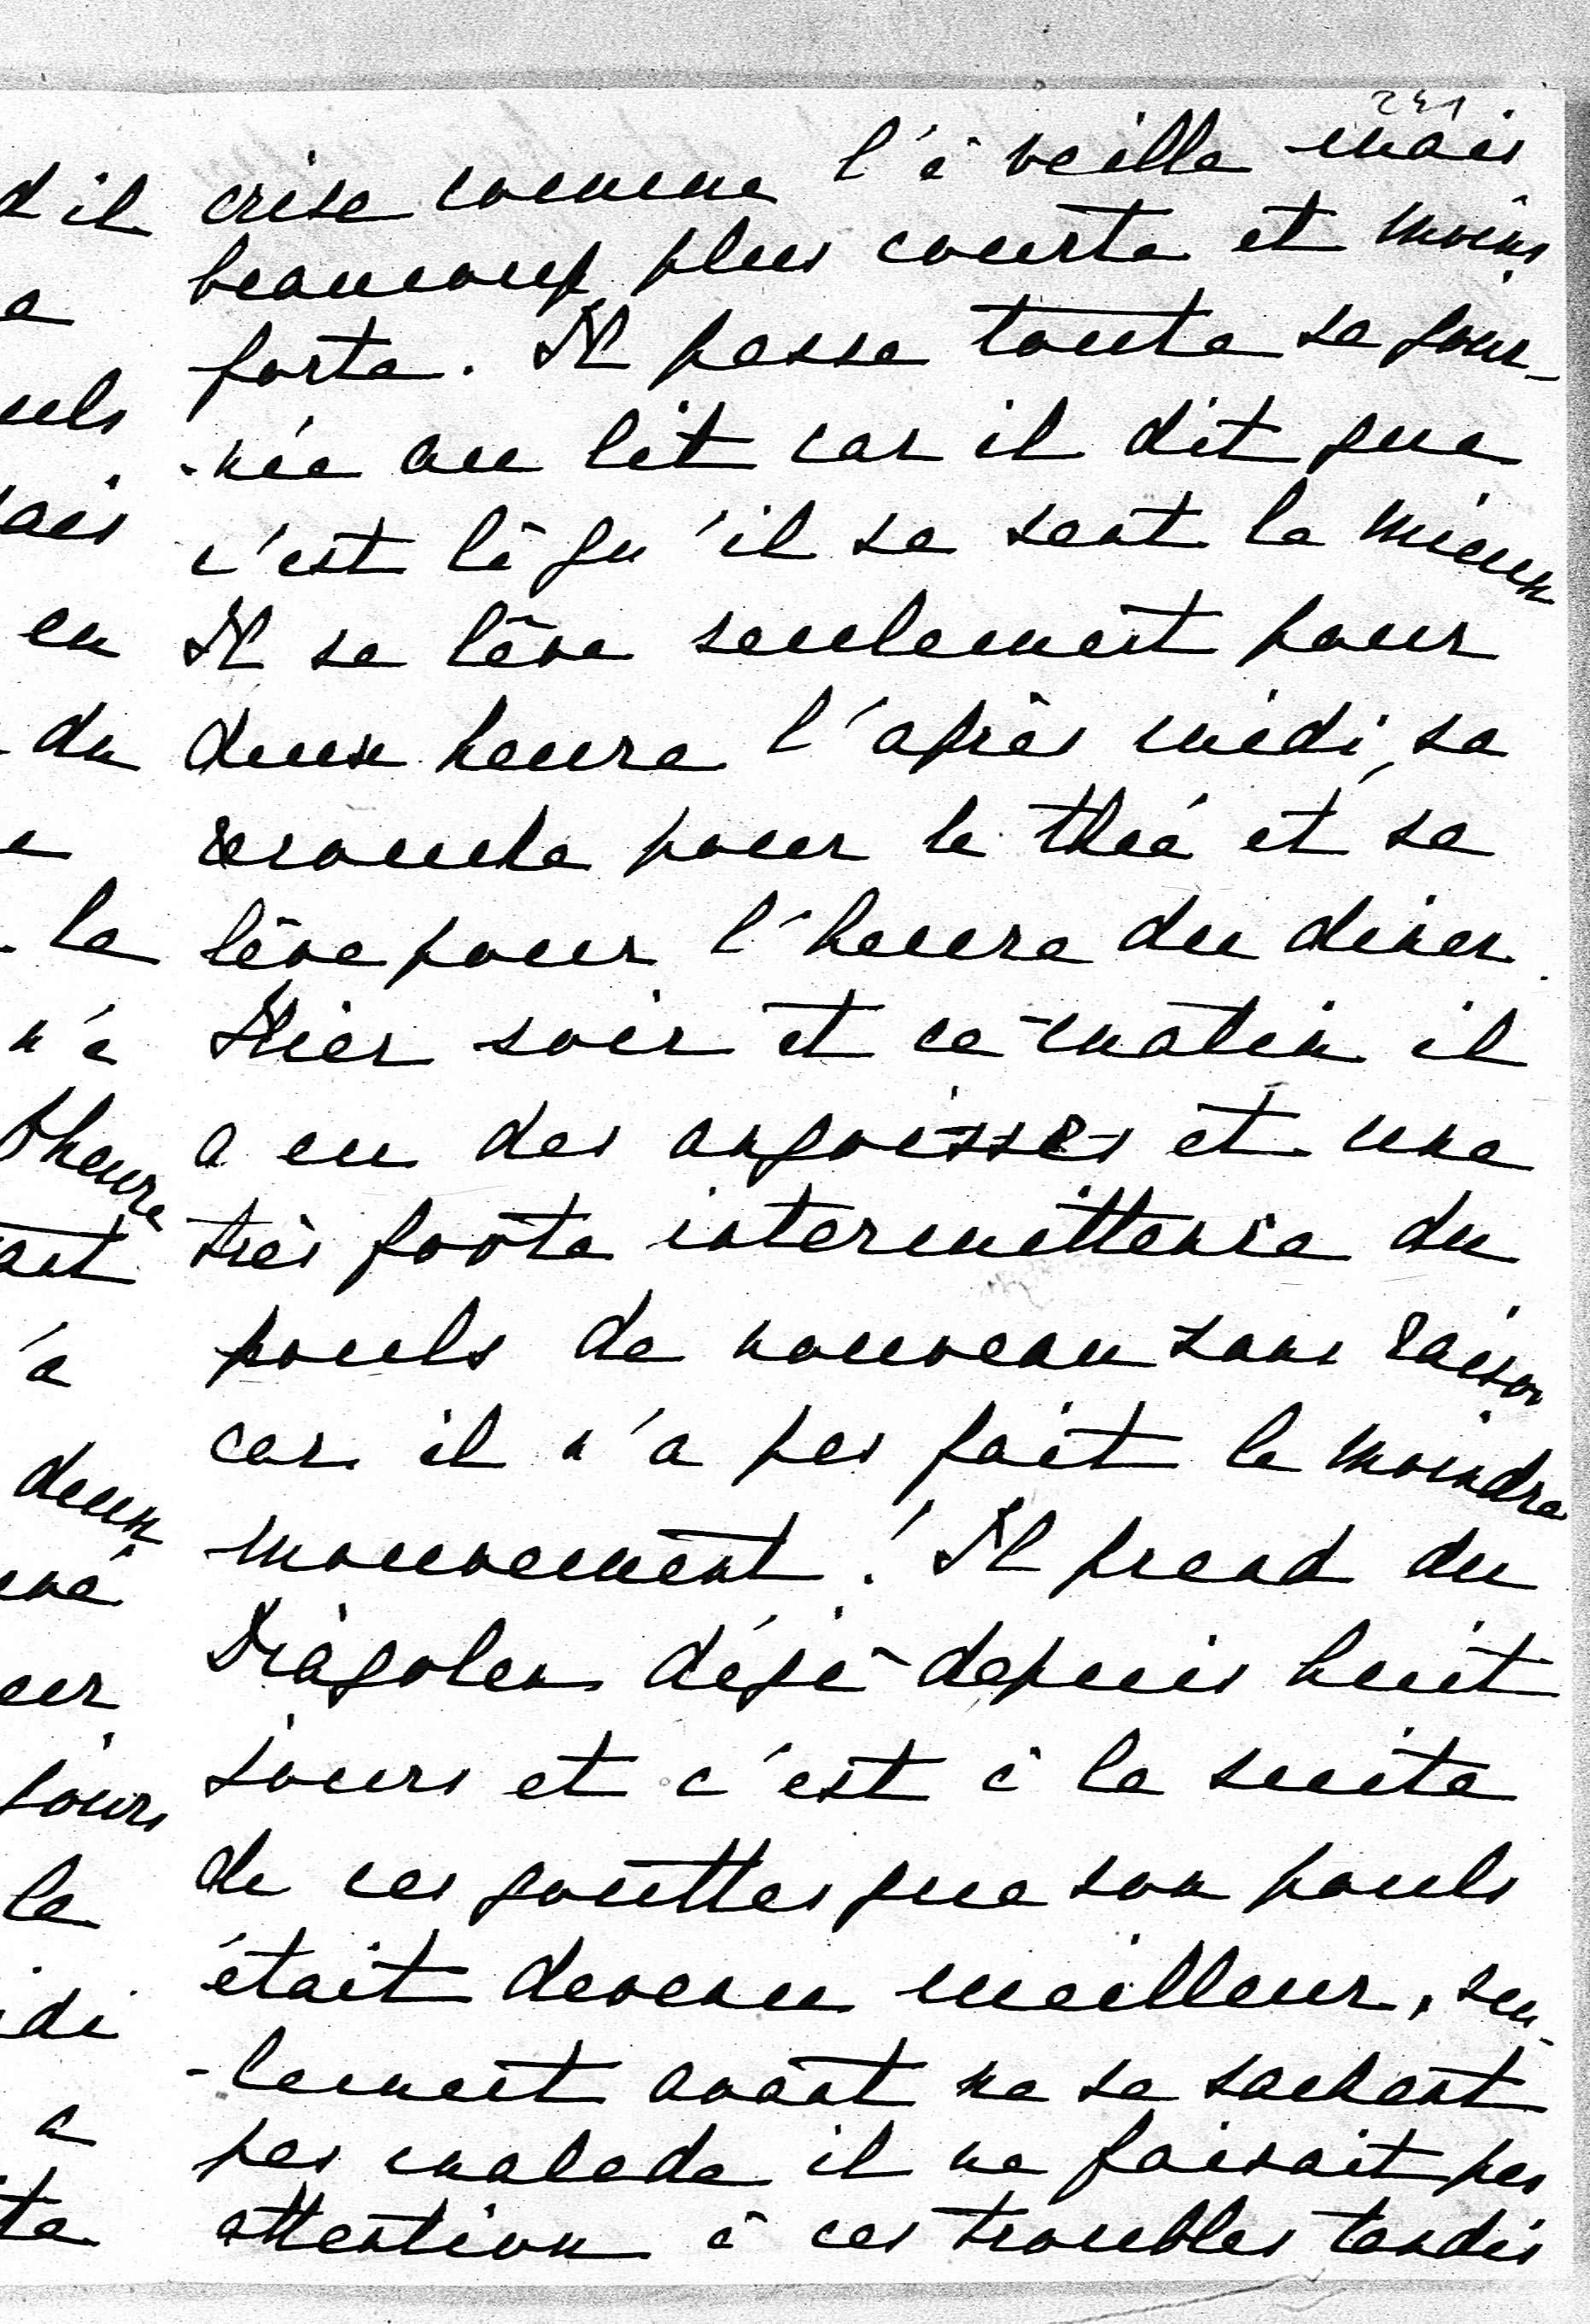 241
crise comme l'à veille mais
beaucoup plus courte et moins
forte. Il passe toute sa jour-
-née au lit car il dit que
c'est là qu'il se sent le mieux
Il se lève seulement pour
deux heure l'après midi, se
recouche pour le thé et se
lève pour l'heure du diner.
Hier soir et ce matin il
a eu des angoisses et une
très forte intermittence du
pouls de nouveau sans raison
car il n'a pas fait le moindre
mouvement! Il prend du
déjà depuis huit
jours et c'est à la suite
de ces gouttes que son pouls
était devenu meilleur, seu-
-lement avant ne se sachant
pas malade il ne faisait pas
attention à ces troubles tandis
d il
a
en
du
la
n'a
heure
'a
deux
jours
la
a